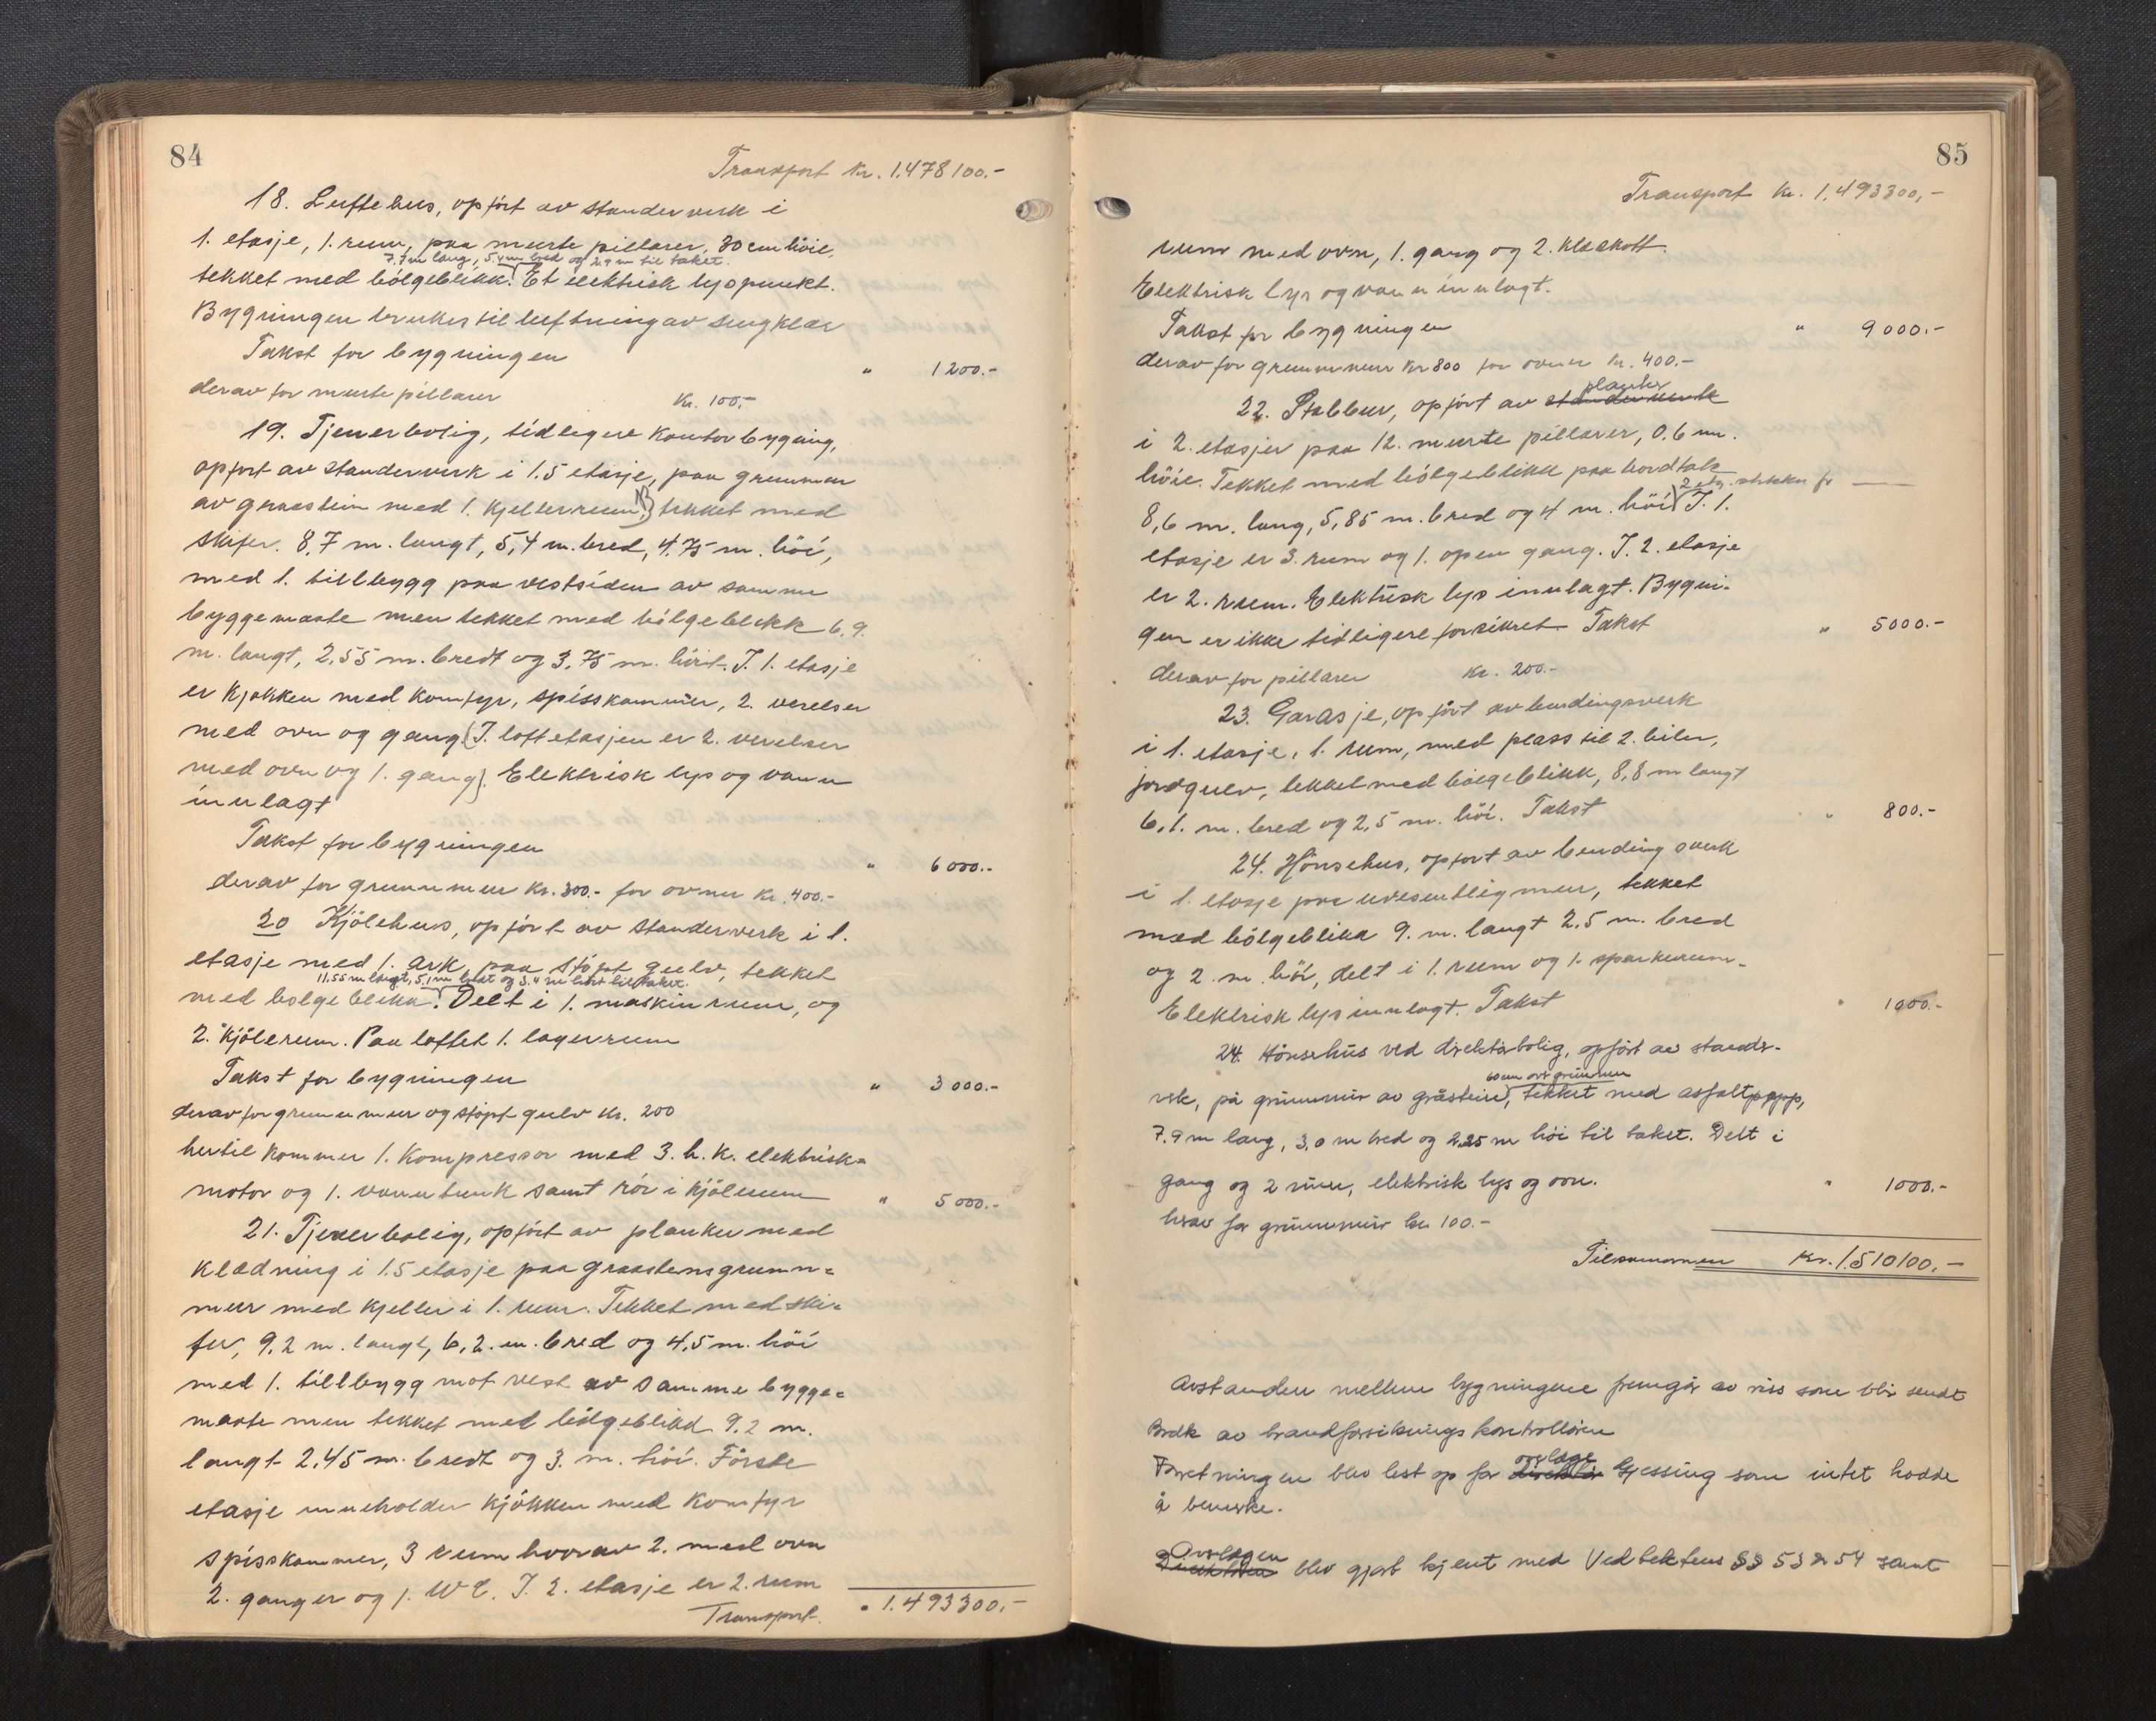 84
Transport Kr. 1.478100.-
18. Luftehus, opført av standerverk i
1. etasje, 1. rum, paa murte pillarer, 30 cm höie,
7.7 m lang, 5.4 m bred og 2.9 m til taket.
tekket med bölgeblikk. Et elektrisk lyspunkt.
Bygningen brukes til luftning av sengklær
Takst for bygningen " 1200.-
derav for murte pillarer Kr. 100.-
19. Tjenerbolig, tidligere kontorbygning,
opfört av standerverk i 1.5 etasje, paa grunnmur
av graastein med 1. kjellerrum, tekket med
skifer. 8,7 m. langt, 5,4 m. bred, 4.75 m. höi,
med 1. tillbygg paa vestsiden av samme
byggemaate men tekket med bölgeblikk 6,9.
m. langt, 2,55 m. bredt og 3,75 m. höit. I. 1. etasje
er kjøkken med komfyr, spisskammer, 2. verelser
med ovn og gang. (I. loftetasjen er 2. verelser
med ovn og 1. gang). Elektrisk lys og vann
innlagt
Takst for bygningen " 6000.-
derav for grunnmur Kr. 300.- for ovner Kr. 400.-
20 Kjölehus, opfört av standerverk i 1.
etasje med 1. ark, paa stöpt gulv, tekket
11.55 m langt, 5,1 m bredt og 3.4 m höit til taket.
med bolgeblikk. Delt i 1. maskinrum, og
2. kjölerum. Paa loftet 1. lagerrum
Takst for bygningen " 3000.-
derav for grunnmur og stöpt gulv Kr. 200
hertil kommer 1. kompressor med 3. h. k. elektrisk=
motor og 1. vanntank samt rör i kjölerum " 5000.-
21. Tjenerbolig, opfört av planker med
klædning i 1.5 etasje paa graastensgrunn=
mur med kjeller i 1. rum. Tekket med ski=
fer, 9,2 m. langt, 6,2. m. bred og 4,5 m. höi
med 1. tillbygg mot vest av samme bygge=
maate men tekket med bölgeblikk 9.2 m.
langt 2.45 m. bredt og 3. m. höi. Förste
etasje inneholder kjökken med komfyr
spisskammer, 3 rum hvorav 2. med ovn
2. ganger og 1. W C. I. 2. etasje er 2. rum
Transport. " 1.493300.-
85
Transport Kr. 1,493300,-
rum med ovn, 1. gang og 2. kleskott.
Elektrisk lys og vann innlagt.
Takst for bygningen " 9000.-
derav for grunnmur Kr 800 for ovner Kr. 400.-
planker
22. Stabbur, opfört av standerverk
i 2. etasjer paa 12. murte pillarer, 0.6 m.
höie. Tekket med bölgeblikk paa bordtak
2 etg. stikker fr
8,6 m. lang, 5,85 m. bred og 4 m. höi I. 1.
etasje er 3. rum og 1. open gang. I. 2. etasje
er 2. rum. Elektrisk lys innlagt. Bygni-
gen er ikke tidligere forsikret. Takst " 5000.-
derav for pillarer Kr. 200.-
23. Garasje, opfört av bindingsverk
i 1. etasje, 1. rum, med plass til 2. biler,
jordgulv, tekket med bölgeblikk, 8,8 m langt
6,1. m. bred og 2,5 m. höi. Takst " 800.-
24. Hönsehus, opfort av bindingsverk
i 1. etasje paa uvesentlig mur, tekket
med bölgeblikk 9. m. langt 2,5 m. bred
og 2. m. höi, delt i 1. rum og 1. sparkerum.
Elektrisk lys innlagt. Takst " 1000.-
24. Hönsehus ved direktörbolig, opfört av stander-
60 cm over grunnen
verk, på grunnmur av gråstein, tekket med asfaltpapp,
7.9 m lang, 3,0 m bred og 2,25 m höi til taket. Delt i
gang og 2 rum, elektrisk lys og ovn. " 1000.-
herav for grunnmur kr 100.-
Tilsammen Kr. 1.510100.-
Avstanden mellem bygningene fremgår av riss som blir sendt
Brdk av brandforsikringskontrolløren
overlæge
Forretningen blev lest op for direktör Gjessing som intet hadde
å bemerke.
Overlægen
Direktören blev gjort kjent med Vedtektens §§ 53 & 54 samt